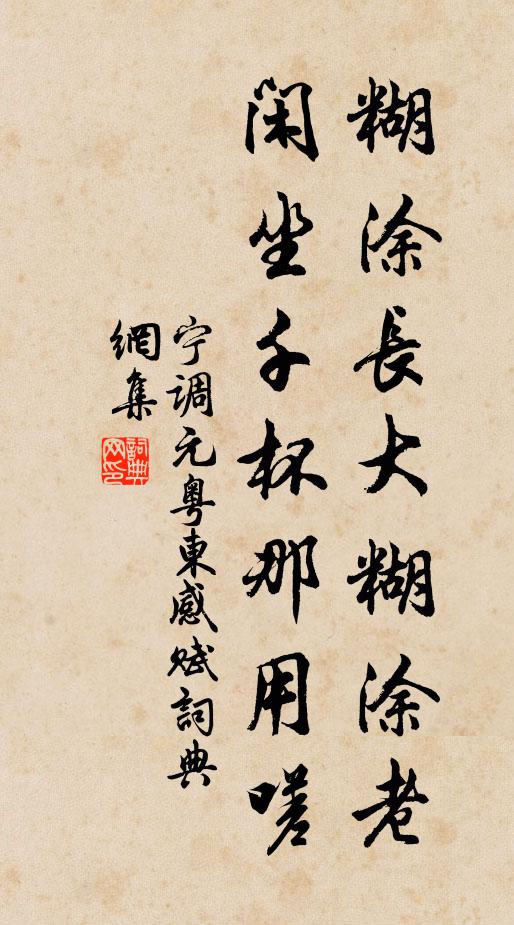 糊涂長大糊涂老
闲坐千杯那用嗟
宁调元粤東感赋詞典
網集
詞典網印